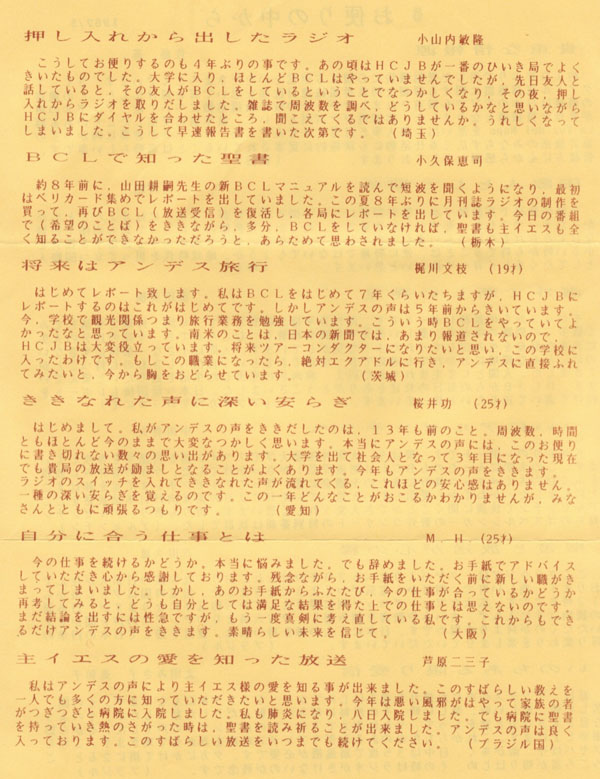 押し入れから出したラジオ　小山内敏隆
こうしてお便りするのも４年ぶりの事です。あの頃はＨＣＪＢが一番のひいき局でよく
きいたものでした。大学に入り，ほとんどＢＣＬはやっていませんでしたが，先日友人と
話していると，その友人がＢＣＬをしているということでなつかしくなり，その夜，押し
入れからラジオを取りだしました。雑誌で周波数を調べ，どうしているかなと思いながら
ＨＣＪＢにダイヤルを合わせたところ，聞こえてくるではありませんか。うれしくなって
しまいました。こうして早速報告書を書いた次第です。　（埼玉）
ＢＣＬで知った聖書　小久保恵司
約８年前に，山田耕嗣先生の新ＢＣＬマニュアルを読んで短波を聞くようになり，最初
はベリカード集めでレポートを出していました。この夏８年ぶりに月刊誌ラジオの制作を
買って，再びＢＣＬ（放送受信）を復活し，各局にレポートを出しています。今日の番組
で（希望のことば）をききながら，多分，ＢＣＬをしていなければ，聖書も主イエスも全
く知ることができなかっただろうと，あらためて思わされました。　（栃木）
将来はアンデス旅行　梶川文枝　（19才）
はじめてレポート致します。私はＢＣＬをはじめて７年くらいたちますが，ＨＣＪＢに
レポートするのはこれがはじめてです。しかしアンデスの声は５年前からきいています。
今，学校で観光関係つまり旅行業務を勉強しています。こういう時ＢＣＬをやっていてよ
かったなと思っています。南米のことは，日本の新聞では，あまり報道されないので
ＨＣＪＢは大変役立っています。将来ツアーコンダクターになりたいと思い，この学校に
入ったわけです。もしこの職業になったら，絶対エクアドルに行き，アンデスに直接ふれ
てみたいと，今から胸をおどらせています。　（茨城）
ききなれた声に深い安らぎ　桜井功　（25才）
はじめまして。私がアンデスの声をききだしたのは，１３年も前のこと。周波数，時間
ともほとんど今のままで大変なつかしく思います。本当にアンデスの声には，このお便り
に書き切れない数々の思い出があります。大学を出て社会人となって３年目になった現在
でも貴局の放送が励ましとなることがよくあります。今年もアンデスの声をききます。
ラジオのスイッチを入れてききなれた声が流れてくる，これほどの安心感はありません。
一種の深い安らぎを覚えるのです。この一年どんなことがおこるかわかりませんが，みな
さんとともに頑張るつもりです。　（愛知）
自分に合う仕事とは　Ｍ．Ｈ．（25才）
今の仕事を続けるかどうか，本当に悩みました。でも辞めました。お手紙でアドバイス
していただき心から感謝しております。残念ながら，お手紙をいただく前に新しい職がき
まってしまいました。しかし，あのお手紙からふたたび，今の仕事が合っているかどうか
再考してみると，どうも自分としては満足な結果を得た上での仕事とは思えないのです。
まだ結論を出すには性急ですが，もう一度真剣に考え直している私です。これからもでき
るだけアンデスの声をききます。素晴らしい未来を信じて。　（大阪）
主イエスの愛を知った放送　芦原二三子
私はアンデスの声により主イエス様の愛を知る事が出来ました。このすばらしい教えを
一人でも多くの方に知っていただきたいと思います。今年は悪い風邪がはやって家族の者
がつぎつぎと病院に入院しました。私も肺炎になり，八日入院しました。でも病院に聖書
を持っていき熱のさがった時は，聖書を読み祈ることが出来ました。アンデスの声は良く
入っております。このすばらしい放送をいつまでも続けてください。　（ブラジル国）